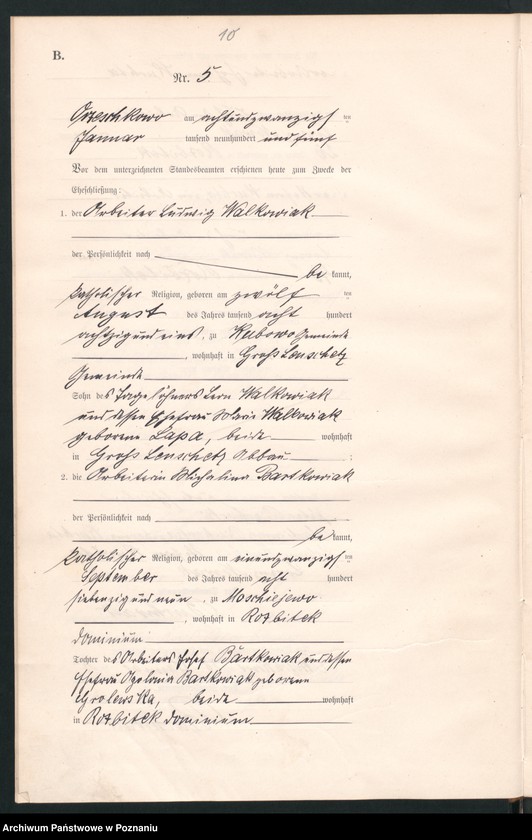 10
B.
Nr. 5
Orzeschkowo am achtundzwanzigs ten
Januar tausend neunhundert und fünf
Vor dem unterzeichneten Standesbeamten erschienen heute zum Zwecke der
Eheschließung:
1. der Arbeiter Ludwig Walkowiak
der Persönlichkeit nach
be kannt,
katholischer Religion, geboren am zwölf ten
August des Jahres tausend acht hundert
achtzig und eins, zu Kubowo Gemeinde
, wohnhaft in Groß Lenschetz
Gemeinde
Sohn des Tagelöhners Walkowiak
und dessen Ehefrau Marie Walkowiak
geborene Lapa, beide wohnhaft
in Groß Lenschetz Abbau ;
2. die Arbeiterin Michalina Bartkowiak
der Persönlichkeit nach
be kannt,
katholischer Religion, geboren am einundzwanzigs ten
September des Jahres tausend acht hundert
siebenzig und neun, zu Moschiejewo
, wohnhaft in Rozbitek
Dominium
Tochter des Arbeiters Josef Bartkowiak und dessen
Ehefrau Apolonia Bartkowiak geborene
Grolewska, beide wohnhaft
in Rozbitek Dominium
Archiwum Państwowe w Poznaniu